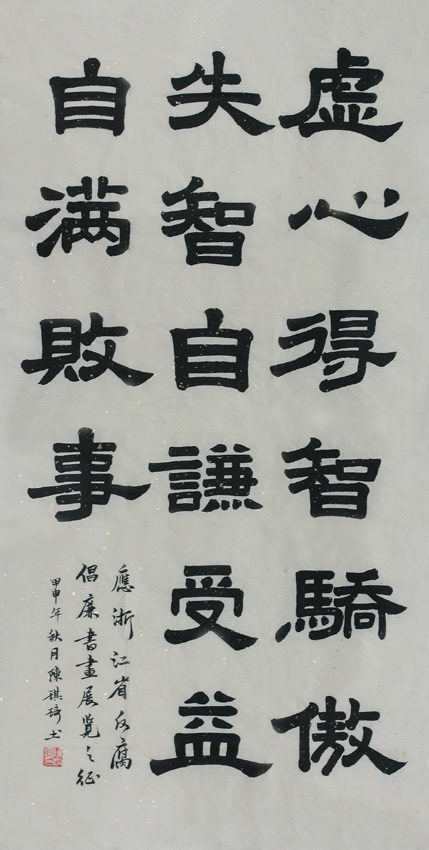 虛心得智驕傲
失智自謙受益
自满敗事
應浙江省反腐
倡廉書畫展覽之征
甲申年秋月陳琪琦書